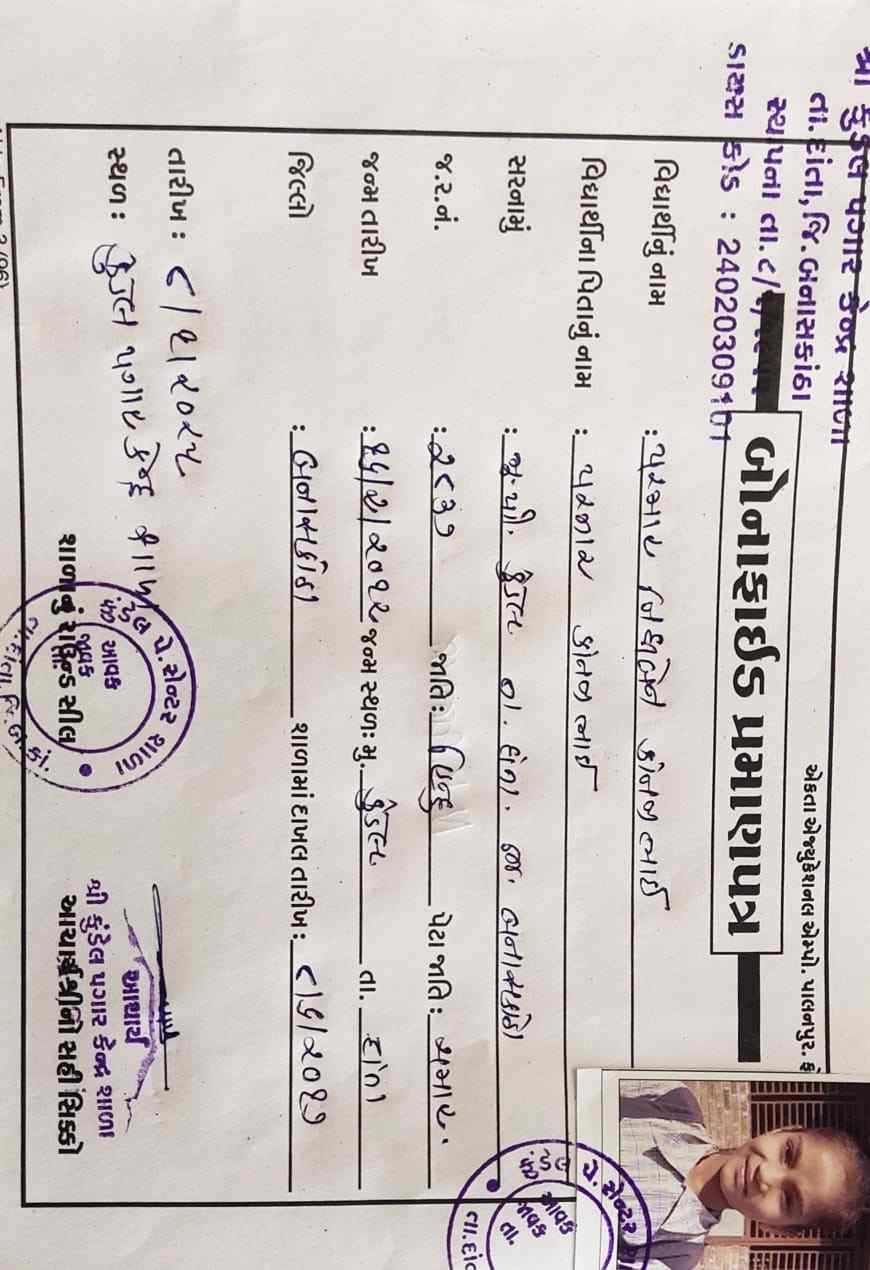 શ્રી કુંડેલ પગાર કેન્દ્ર શાળા
તા.દાંતા, જિ. બનાસકાંઠા
સ્થાપના તા. ૮/
ડાયસ કોડ : 24020309101
એકતા એજ્યુકેશનલ એમ્પો. પાલનપુર.
બોનાફાઈડ પ્રમાણપત્ર
વિદ્યાર્થીનું નામ : પરમાર કાંતીભાઈ
વિદ્યાર્થીના પિતાનું નામ : પરમાર કાંતીભાઈ
સરનામું : મુ.પો. કુંડેલ તા. દાંતા. જી. બનાસકાંઠા
જ.ર.નં. : ૨૮૩૭ જાતિ : હિન્દુ પેટા જાતિ : પરમાર.
જન્મ તારીખ : જન્મ સ્થળ: મુ. કુંડેલ તા. દાંતા
જિલ્લો : બનાસકાંઠા શાળામાં દાખલ તારીખ :
તારીખ : ૮/૧/૨૦૨૫
સ્થળ : કુંડેલ પગાર કેન્દ્ર શાળા
શાળાનું રાઉન્ડ સીલ
આચાર્ય
શ્રી કુંડેલ પગાર કેન્દ્ર શાળા
આચાર્યશ્રીની સહી સિક્કો
કુંડેલ પે. સેન્ટર શાળા
આવક
જાવક